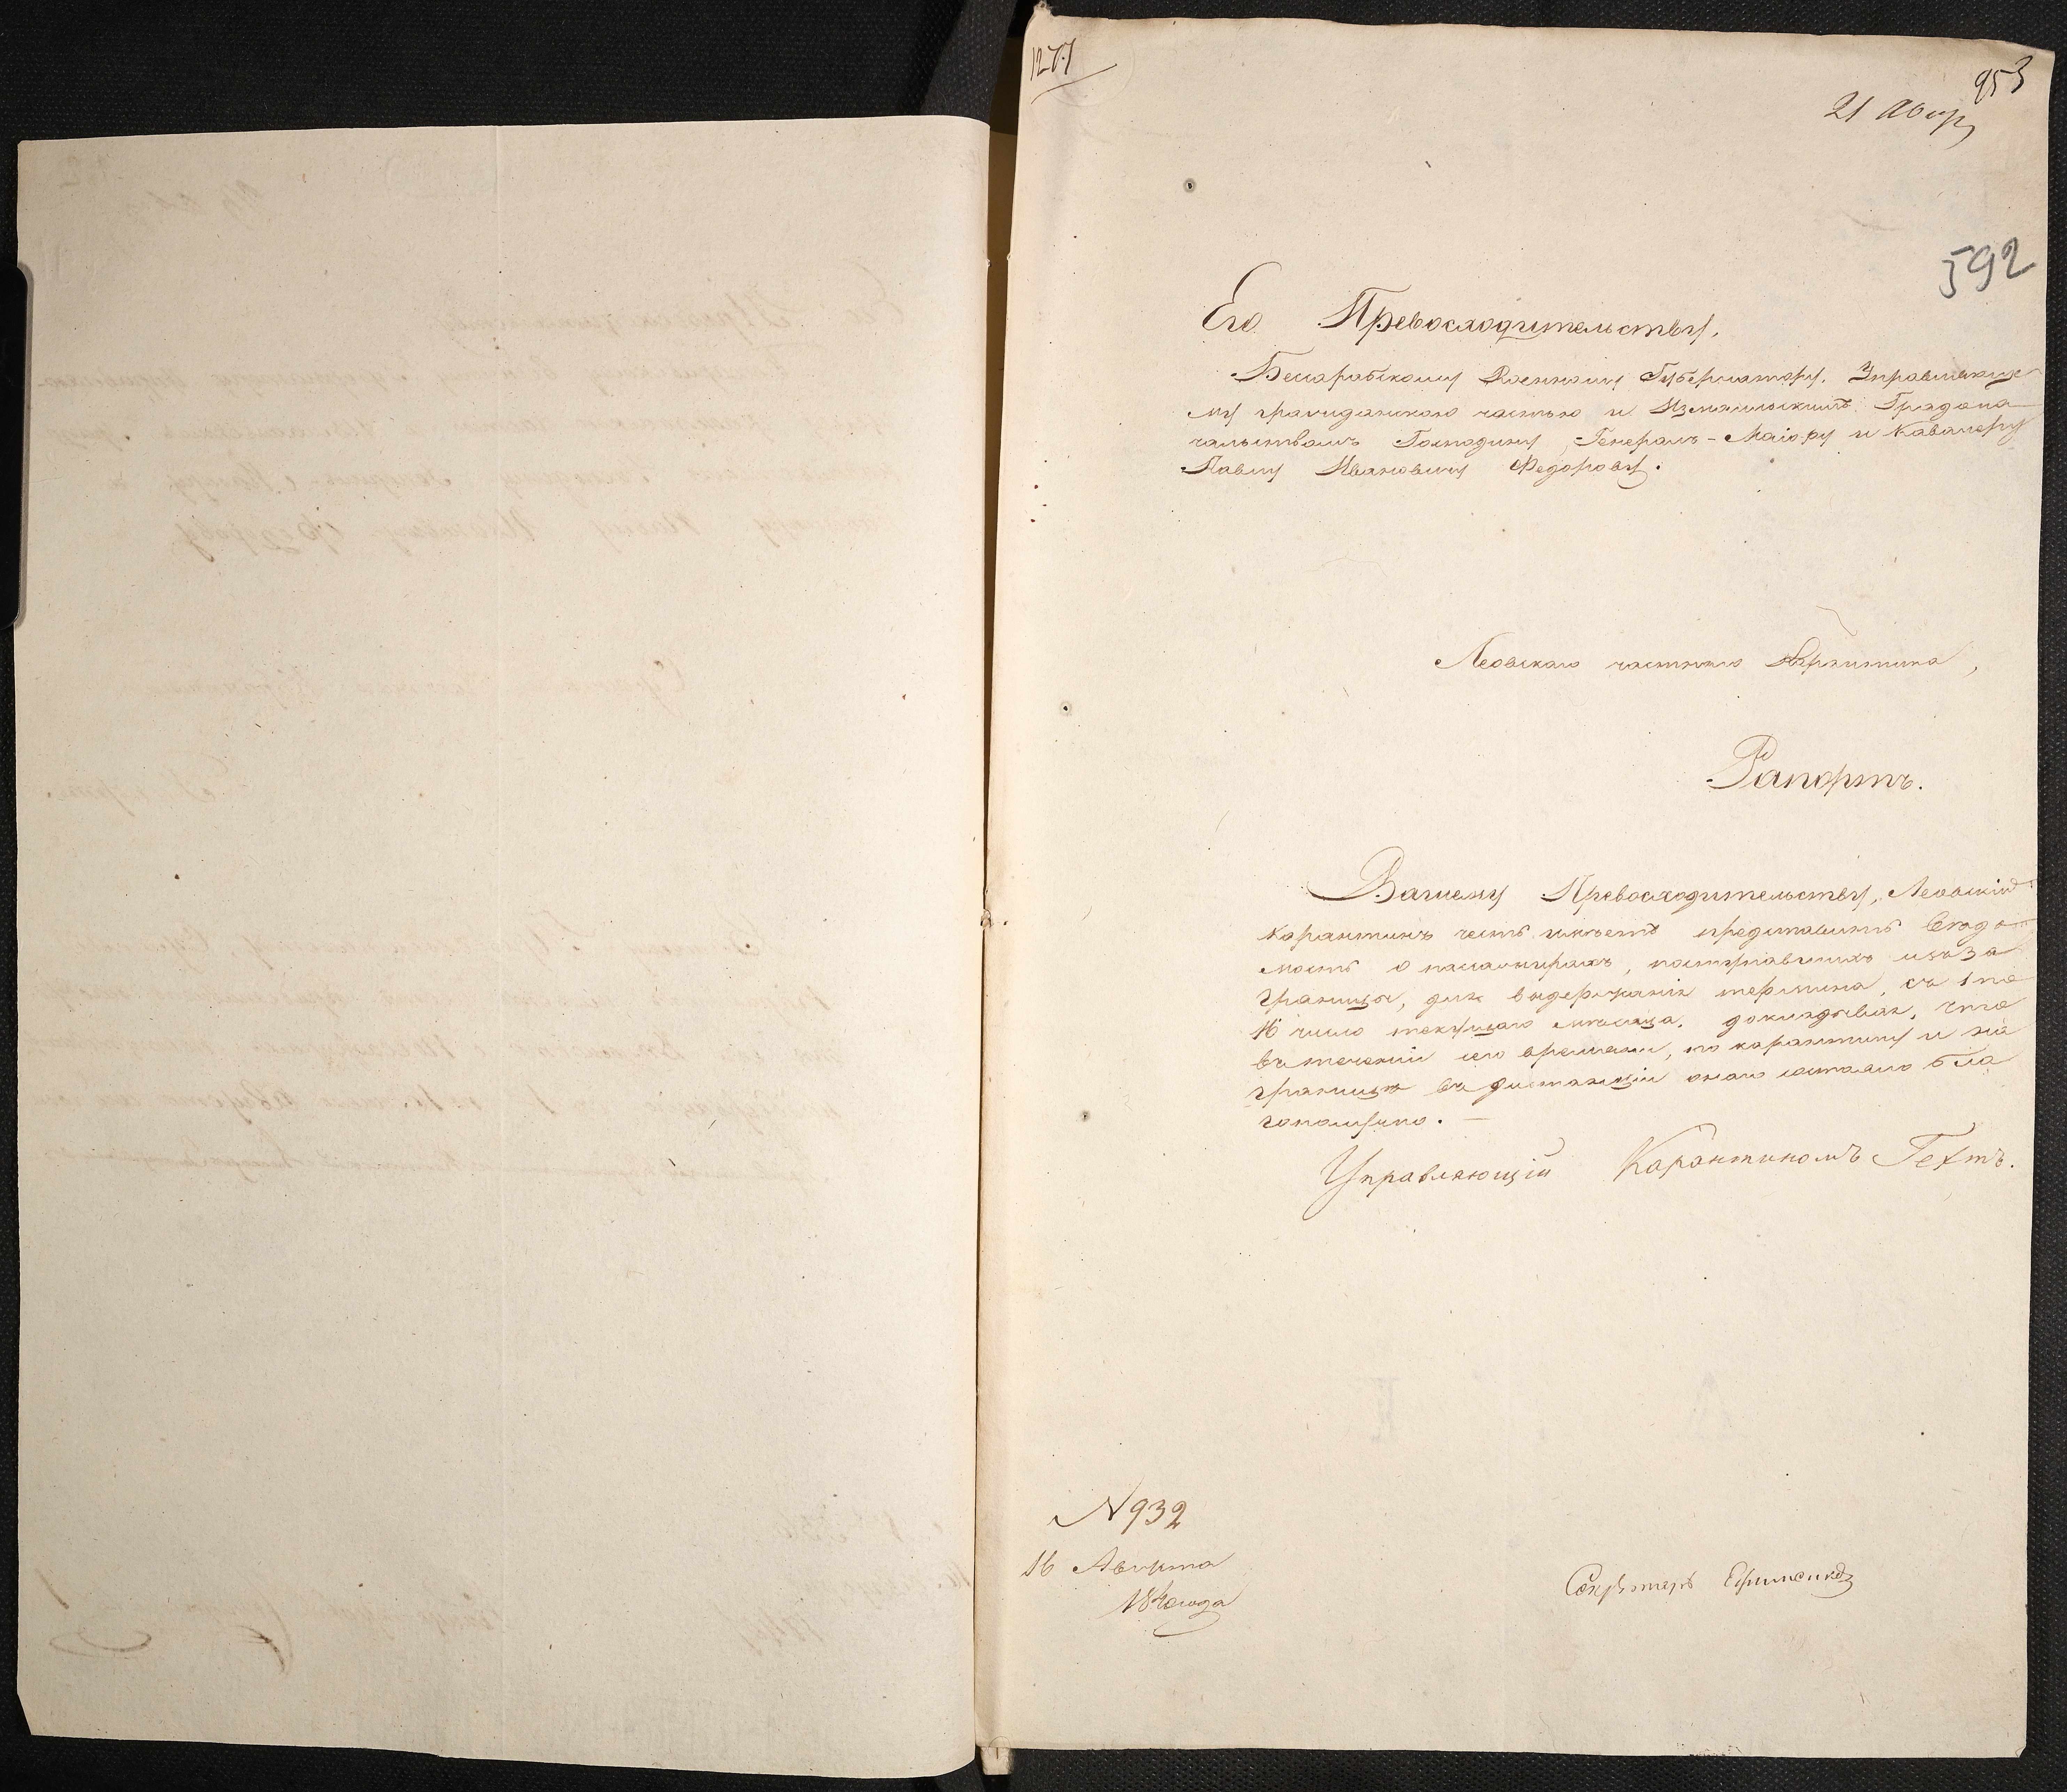 1277
953
21 Авгу
592
Его Превосходительству,
Бессарабскому Военному Губернатору, Управляюще
му гражданскою частью и Измаильскимъ Градона
чальствомъ Господину Генералъ-Маіору и Кавалеру
Павлу Ивановичу Федорову.
Леовскаго частнаго Карантина,
Рапортъ.
Вашему Превосходительству, Леовскій
карантинъ честь имѣетъ представить Вѣдо
мость о пассажирахъ, поступавшихъ изъ за
границы, для выдержанія термина, съ 1 по
16 число текущаго мѣсяца, докладывая, что
въ теченіи сего времени, по карантину и на
границѣ въ дистанціи онаго состояло бла
гополучно. —
Управляющій Карантиномъ Гехтъ.
N 932
16 Августа
1840 года
Секретарь